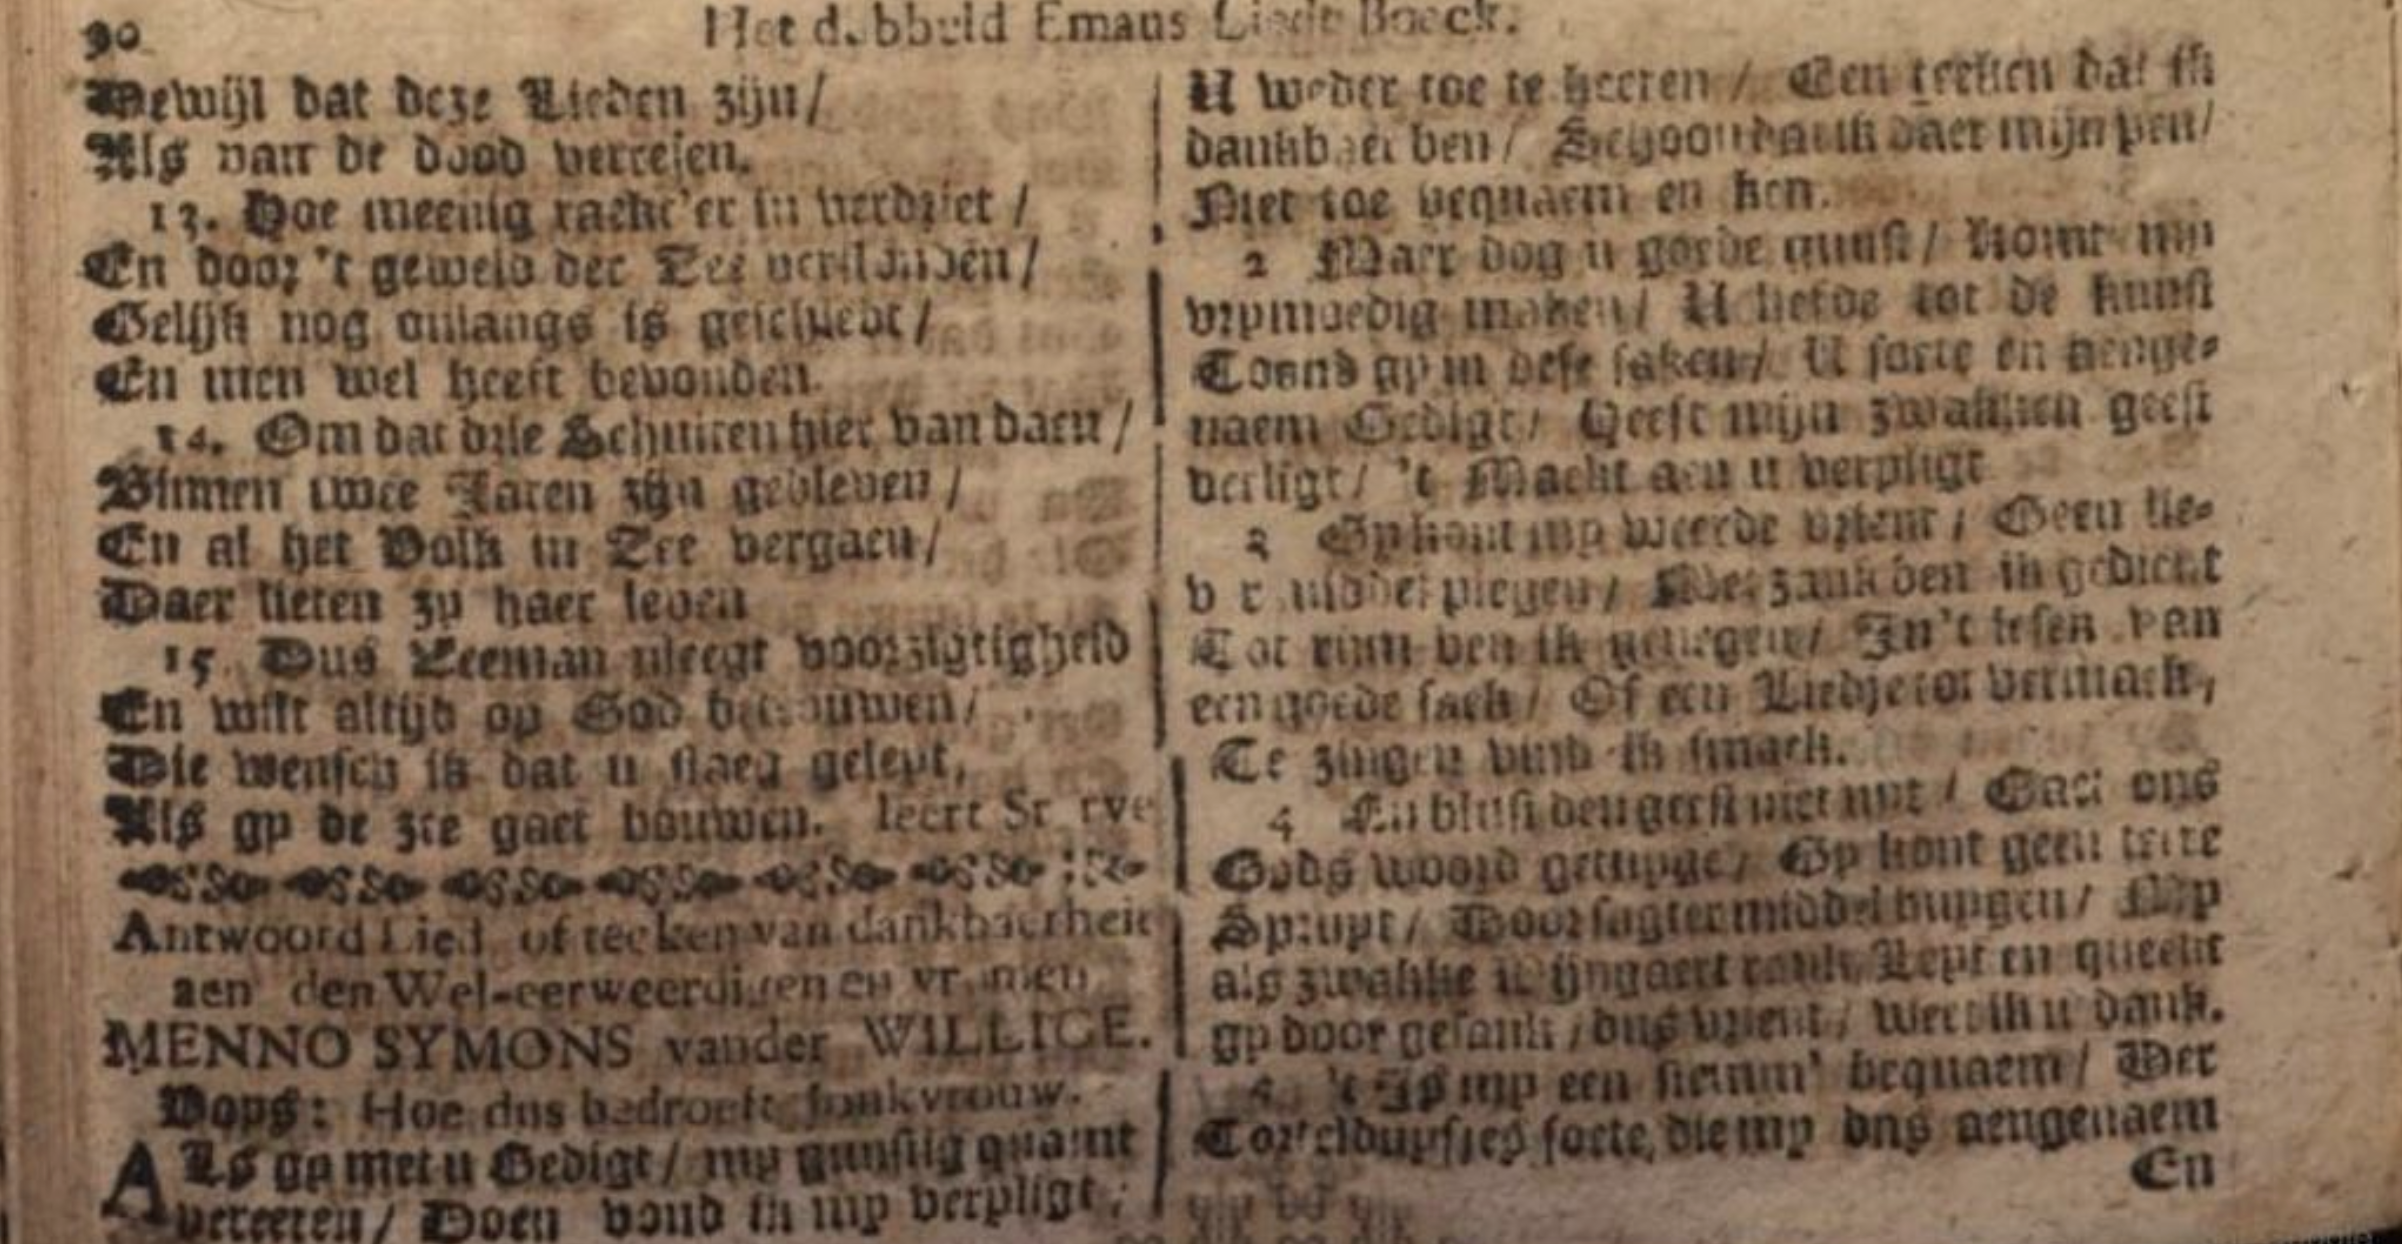 90
Het dubbeld Emaus Liede Boeck.
Dewijl dat deze Lieden zijn /
Als van de dood verresen.
13. Hoe meenig raekt'er in verdriet /
En door 't geweld der Zee verslonden /
Gelijk nog onlangs is geschiedt /
En men wel heeft bevonden.
14. Om dat drie Schuiten hier van daen /
Binnen twee Jaren zijn gebleven /
En al het Volk in Zee vergaen /
Daer lieten zy haer leven
15. Dus Zeeman pleegt voorzigtigheid
En wilt altijd op God betrouwen /
Die wensch ik dat u staeg geleyt,
Als gy de zee gaet bouwen. leert
Antwoord Lied of teeken van dankbaerheit
aen den Wel-eerweerdigen en vromen
MENNO SYMONS vander WILLIGE.
Voys: Hoe dus bedroeft Jonkvrouw.
ALs gy met u Gedigt / my gunstig quamt
vereeren / Doen vond ik my verpligt;
U weder toe te keeren / Een teeken dat ik
dankbaer ben / Schoon dat ik daer mijn pen /
Niet toe bequaem en ken.
2 Maer dog u goede gunst / komt my
vrymoedig maken / U liefde tot de kunst
Toond gy in dese saken / U soete en aenge-
naem Gedigt / Heeft mijn zwakken geest
verligt / 't Maekt aen u verpligt
3 Gy kont my weerde vrient / Geen lie-
ver middel plegen / Met zank ben ik gedient
Tot rijm ben ik genegen / In 't lesen van
een goede saek / Of een Liedje tot vermaek,
Te zingen vind ik smaek.
4 En blust den geest niet uyt / Gaet ons
Gods woord getuyge / Gy kont geen teere
Spruyt / Door sagter middel buygen / My
als zwakke wijngaert rank, Leyt en queekt
gy door gesank / dus vrient / weet ik u dank.
5 't Is my een stemm' bequaem / Der
Tortelduyfjes soete, die my dus aengenaem
En